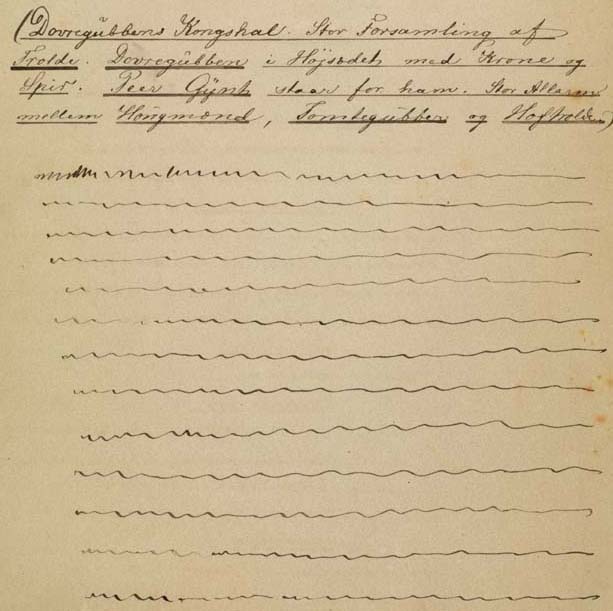 (Dovregübbens Kongshal. Stor Forsamling af
Trolde. Dovregübben i Höjsædet med Krone og
Spir. Peer Gÿnt staar for ham. Stor Allarm
mellem Haugmænd, Tomtegübber og Hoftrolde.)